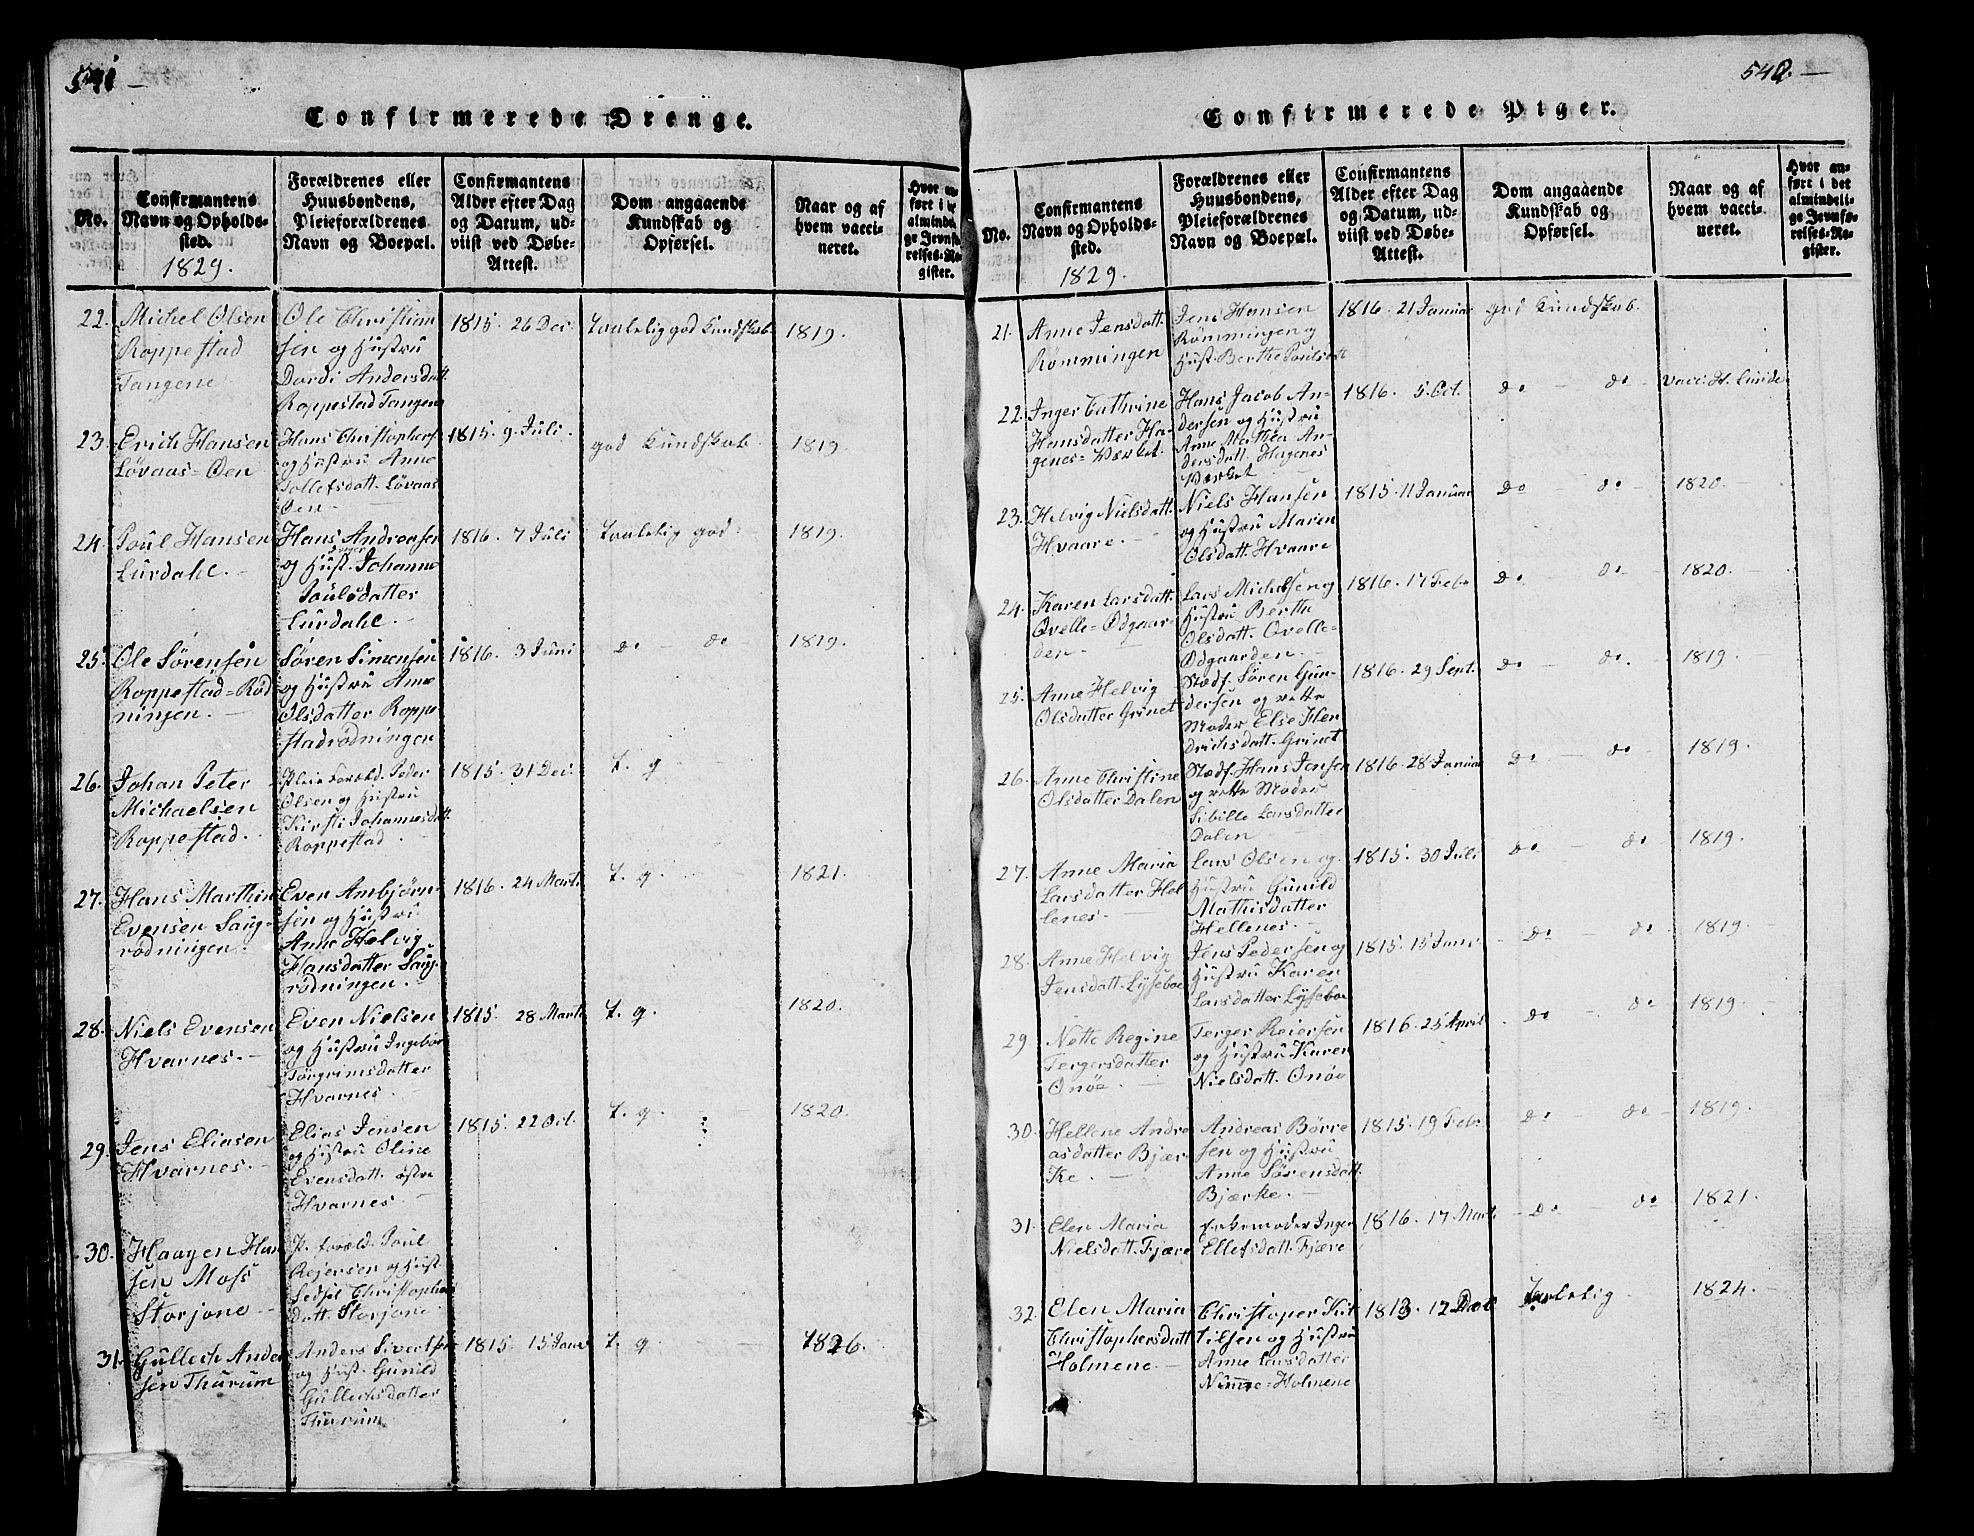 541 —
Confirmerede Drenge.
No.
Confirmantens
Navn og Opholds-
sted.
1829.
Forældrenes eller
Huusbondens,
Pleieforældrenes
Navn og Boepæl.
Confirmantens
Alder efter Dag
og Datum, ud-
viist ved Døbe-
Attest.
Dom angaaende
Kundskab og
Opførsel.
Naar og af
hvem vacci-
neret.
22.
Michel Olsen
Roppestad
Tangene
Ole Christian
sen og Hustru
Dordi Andersdatt
Roppestad Tangene
1815. 26 Dec.
taalelig god Kundskab
1819.
23.
Erich Hansen
Løvaas=Øen
Hans Christophers
og Hustru Anne
Tollefsdatt. Løvaas
Øen
1815. 9. Juli.
god Kundskab.
1819
24.
Poul Hansen
Lurdahl.
Hans Andreasen
og Hust. Johanne
Poulsdatter
Lurdahl.
1816. 7 Juli
taalelig god.
1819.
25.
Ole Sørensen
Roppestad=Rød
ningen.
Søren Simensen
og Hustru Anne
Olsdatter Roppe
stadrødningen
1816. 3 Juni
do — do
1819.
26.
Johan Peter
Michaelsen
Roppestad.
Pleie foræld. Peder
Olsen og Hustru
Kirsti Johannesdatt.
Roppestad
1815. 31 Dec.
t. g.
27.
Hans Marthin
Evensen Saug-
rødningen.
Even Ambjørn-
sen og Hustru
Anne Helvig
Hansdatter Saug-
rødningen.
1816. 24 Marts
t. g.
1821.
28.
Niels Evensen
Hvarnes.
Even Nielsen
og Hustru Ingebor
Torgrimsdatter
Hvarnes.
1815. 28 Marts
t. g.
1820.
29.
Jens Eliasen
Hvarnes.
Elias Jensen
og Hustru Oline
Evensdatt. østre
Hvarnes
1815. 22 Oct.
t. g.
1820.
30.
Haagen Han
sen Moss
Storjone
P. foræld. Poul
Rejersen og Hust.
Christophers
datt. Storjone
31.
Gullech Ander
sen Thurum
Anders Sivertsen
og Hust. Gunild
Gullechsdatter
Thurum
1815. 15 Janu
t. g
1826.
542. —
Confirmerede Piger.
No.
Confirmantens
Navn og Opholds-
sted.
1829.
Forældrenes eller
Huusbondens,
Pleieforældrenes
Navn og Boepæl.
Confirmantens
Alder efter Dag
og Datum, ud-
viist ved Døbe-
Attest.
Dom angaaende
Kundskab og
Opførsel.
Naar og af
hvem vacci-
neret.
Hvor an-
ført i det
almindeli-
ge Jevnfø-
relses-Re-
gister.
21.
Anne Jensdatt.
Rømmingen
Jens Hansen
Rømmingen og
Hust. Berthe Poulsdatt
1816. 21 Januar
god Kundskab.
22.
Inger Cathrine
Hansdatter Ha-
genes=Værket.
Hans Jacob An-
dersen og Hustru
Anne Mathea An-
dersdatt. Hagenes
Værket
1816. 5 Oct.
do — do
vacc. H. Lunde
23.
Helvig Nielsdatt.
Hvaare.
Niels Hansen
og Hustru Maren
Olsdatt. Hvaare
1815. 11 Januar
do — do
1820.
24.
Karen Larsdatt.
Qvelle=Ødgaar-
den.
Lars Michelsen og
Hustru Berthe
Olsdatt. Qvelle-
Ødgaarden.
1816. 17 Febr
do — do
1820.
25.
Anne Helvig
Olsdatter Grinet
Stedf. Søren Gun-
dersen og rette
Moder Else Hen
drichsdatt. Grinet
1816. 29 Sept.
do — do.
1819.
26.
Anne Christine
Olsdatter Dalen
Stedf. Hans Jensen
og rette Moder
Sibille Larsdatter
Dalen
1816. 28 Januar
do — do
1819.
27.
Anne Maria
Larsdatter Hel
lenes.
Lars Olsen og
Hustru Gunild
Mathisdatter
Hellenes.
1815. 30 Juli
do — do
1819.
28.
Anne Helvig
Jensdatt. Lyseboe
Jens Pedersen og
Hustru Karen
Larsdatter Lyseboe
1815. 15 Janr.
do — do
1819.
29
Nette Regine
Tergersdatter
Onøe.
Terger Reiersen
og Hustru Karen
Nielsdatt. Onøe
1816. 25 April.
do — do
1819.
30.
Hellene Andre
asdatter Bjær
ke.
Andreas Børre
sen og Hustru
Anne Sørensdatt.
Bjærke.
1815. 19 Febr.
do — do
1819.
31.
Elen Maria
Nielsdatt. Fjære
Inger
Ellefsdatt. Fjære
1816. 17 Mart.
do — do
1821.
32.
Elen Maria
Christophersdatt
Holmene.
Christoper Kit
tilsen og Hustru
Anne Larsdatter
Holmene
1813. 12 Dec
Taalelig
1824.